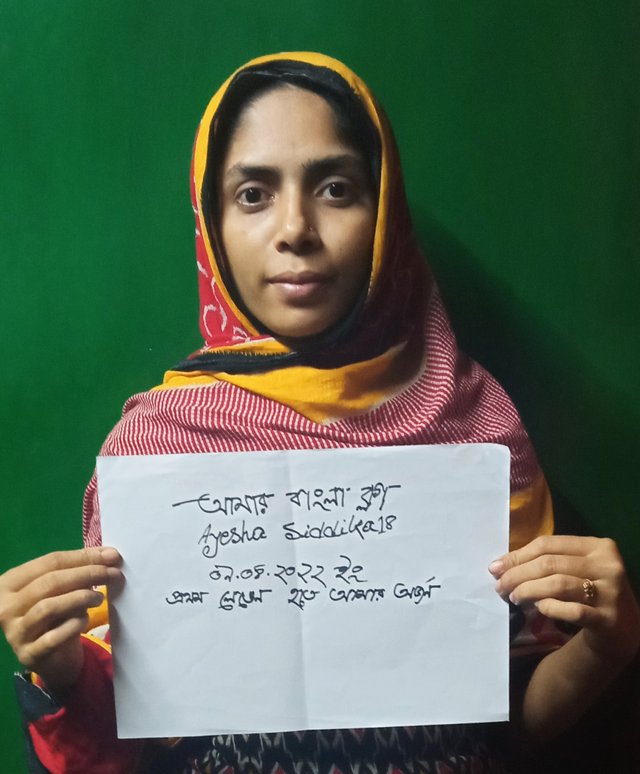 আমার বাংলা ব্লগ
Ayesha Siddika18
০৭.০৪.২০২২ ইং
প্রথম লেভেল হতে আমার অর্জন